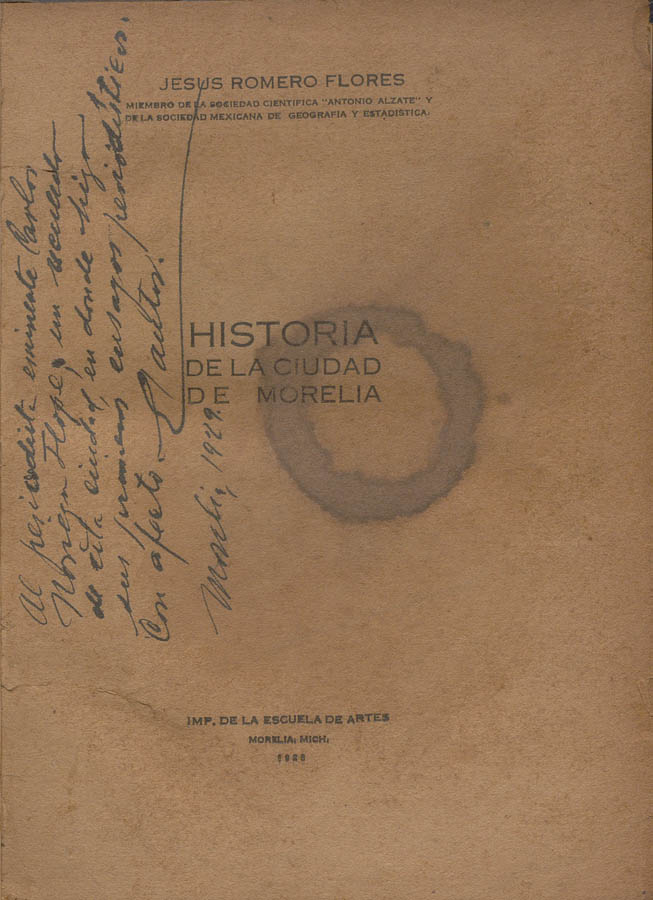 JESUS ROMERO FLORES
MIEMBRO DE LA SOCIEDAD CIENTIFICA "ANTONIO ALZATE" Y
DE LA SOCIEDAD MEXICANA DE GEOGRAFIA Y ESTADISTICA.
HISTORIA
DE LA CIUDAD
DE MORELIA
IMP. DE LA ESCUELA DE ARTES
MORELIA, MICH.
Al periodista eminente Carlos
Noriega Hope, un recuerdo
de esta ciudad, en donde hizo
sus primeros ensayos periodísticos.
Con afecto.
Morelia, 1929.